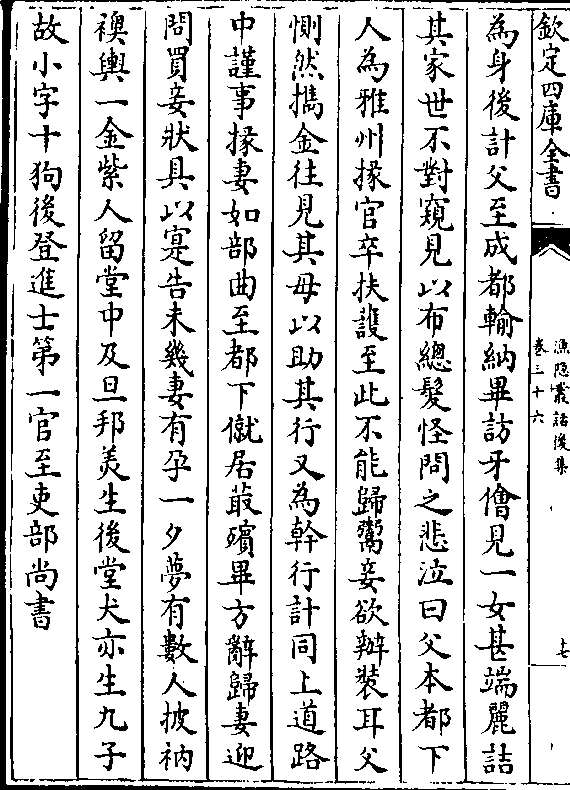 欽定四庫全書
漁隐叢話後集
卷三十六
十七
為身後計父至成都輸納畢訪牙儈見一女甚端麗詰
其家世不對窺見以布總髮怪問之悲泣曰父本都下
人為雅州掾官卒扶護至此不能歸鬻妾欲辦裝耳父
惻然擕金往見其母以助其行又為幹行計同上道路
中謹事掾妻如部曲至都下僦居菆殯畢方辭歸妻迎
問買妾狀具以寔告未幾妻有孕一夕夢有數人披衲
襖輿一金紫人留堂中及旦邦美生後堂犬亦生九子
故小字十狗後登進士第一官至吏部尚書